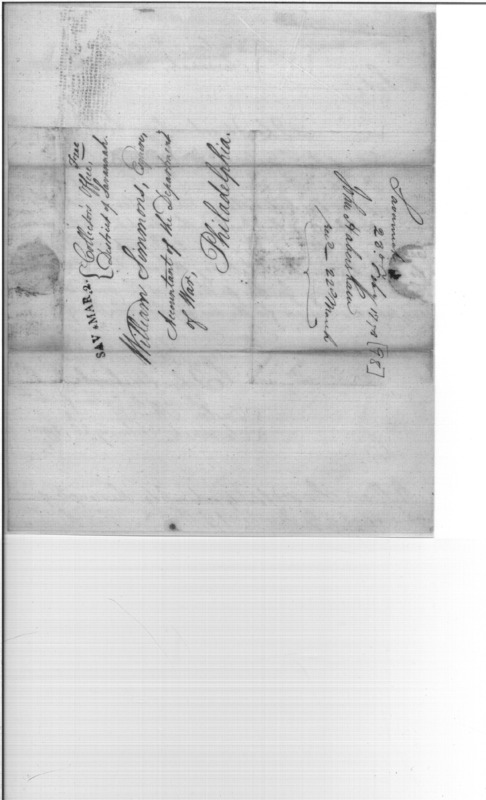 Free
SAV * MAR. 2.
Collector's Office,
District of Savannah.
William Simmons, Esquire,
Accountant of the Department
of War,
Philadelphia.
Savannah
22d Feby 17 [98]
John Habersham
rec'd 22d March